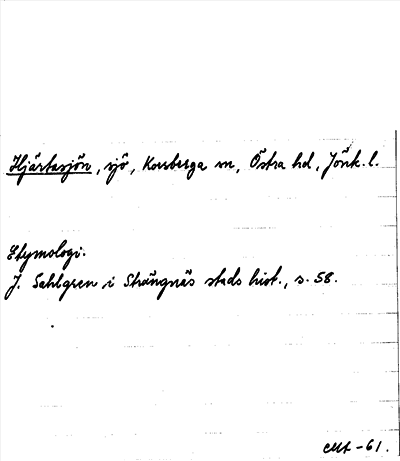 Hjärtasjön, sjö, Korsberga sn, Östra hd, Jönk. l.
Etymologi.
J. Sahlgren i Strängnäs stads hist., s. 58.
-61.